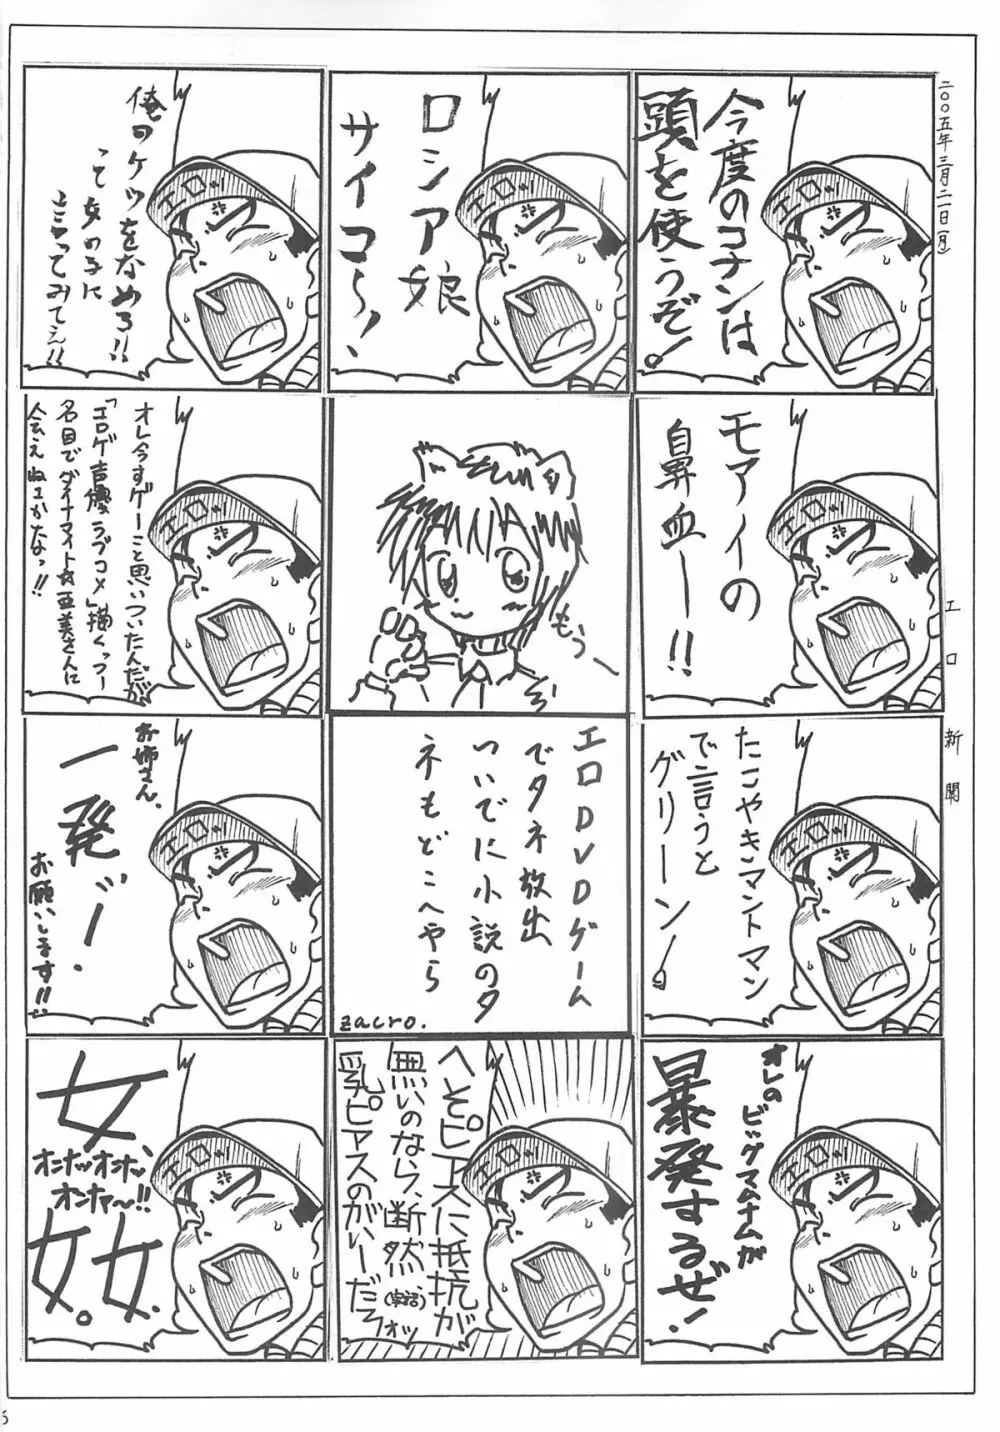 二〇〇五年三月二一日(月)
エロ新聞
今度のコナンは
頭を使うぞ!
エロ
モアイの
鼻血ー!!
エロ
たこやきマントマン
で言うと
グリーン!
エロ
オレの
ビッグマムナムが
暴発するぜ!
エロ
ロシア娘
サイコ〜!
エロ
もぅー
エロDVDゲーム
でタネ放出
ついでに小説のタ
ネもどこへやら
zacro.
へそピアスに抵抗が
無いのなら、断然
乳ピアスのがいーだろ
ォッ
エロ
俺のケツをなめろ!!
って女の子に
言ってみてぇ!!
エロ
オレ今すげーこと思いついたんだが
「エロゲ声優ラブコメ」描くっつー
名目でダイナマイト☆亜美さんに
会えねェかなっ!!
エロ
お姉さん、
一発ッ!
お願いします!!
エロ
女、
オンナッオンナ、
オンナ〜!!
女。女。
エロ